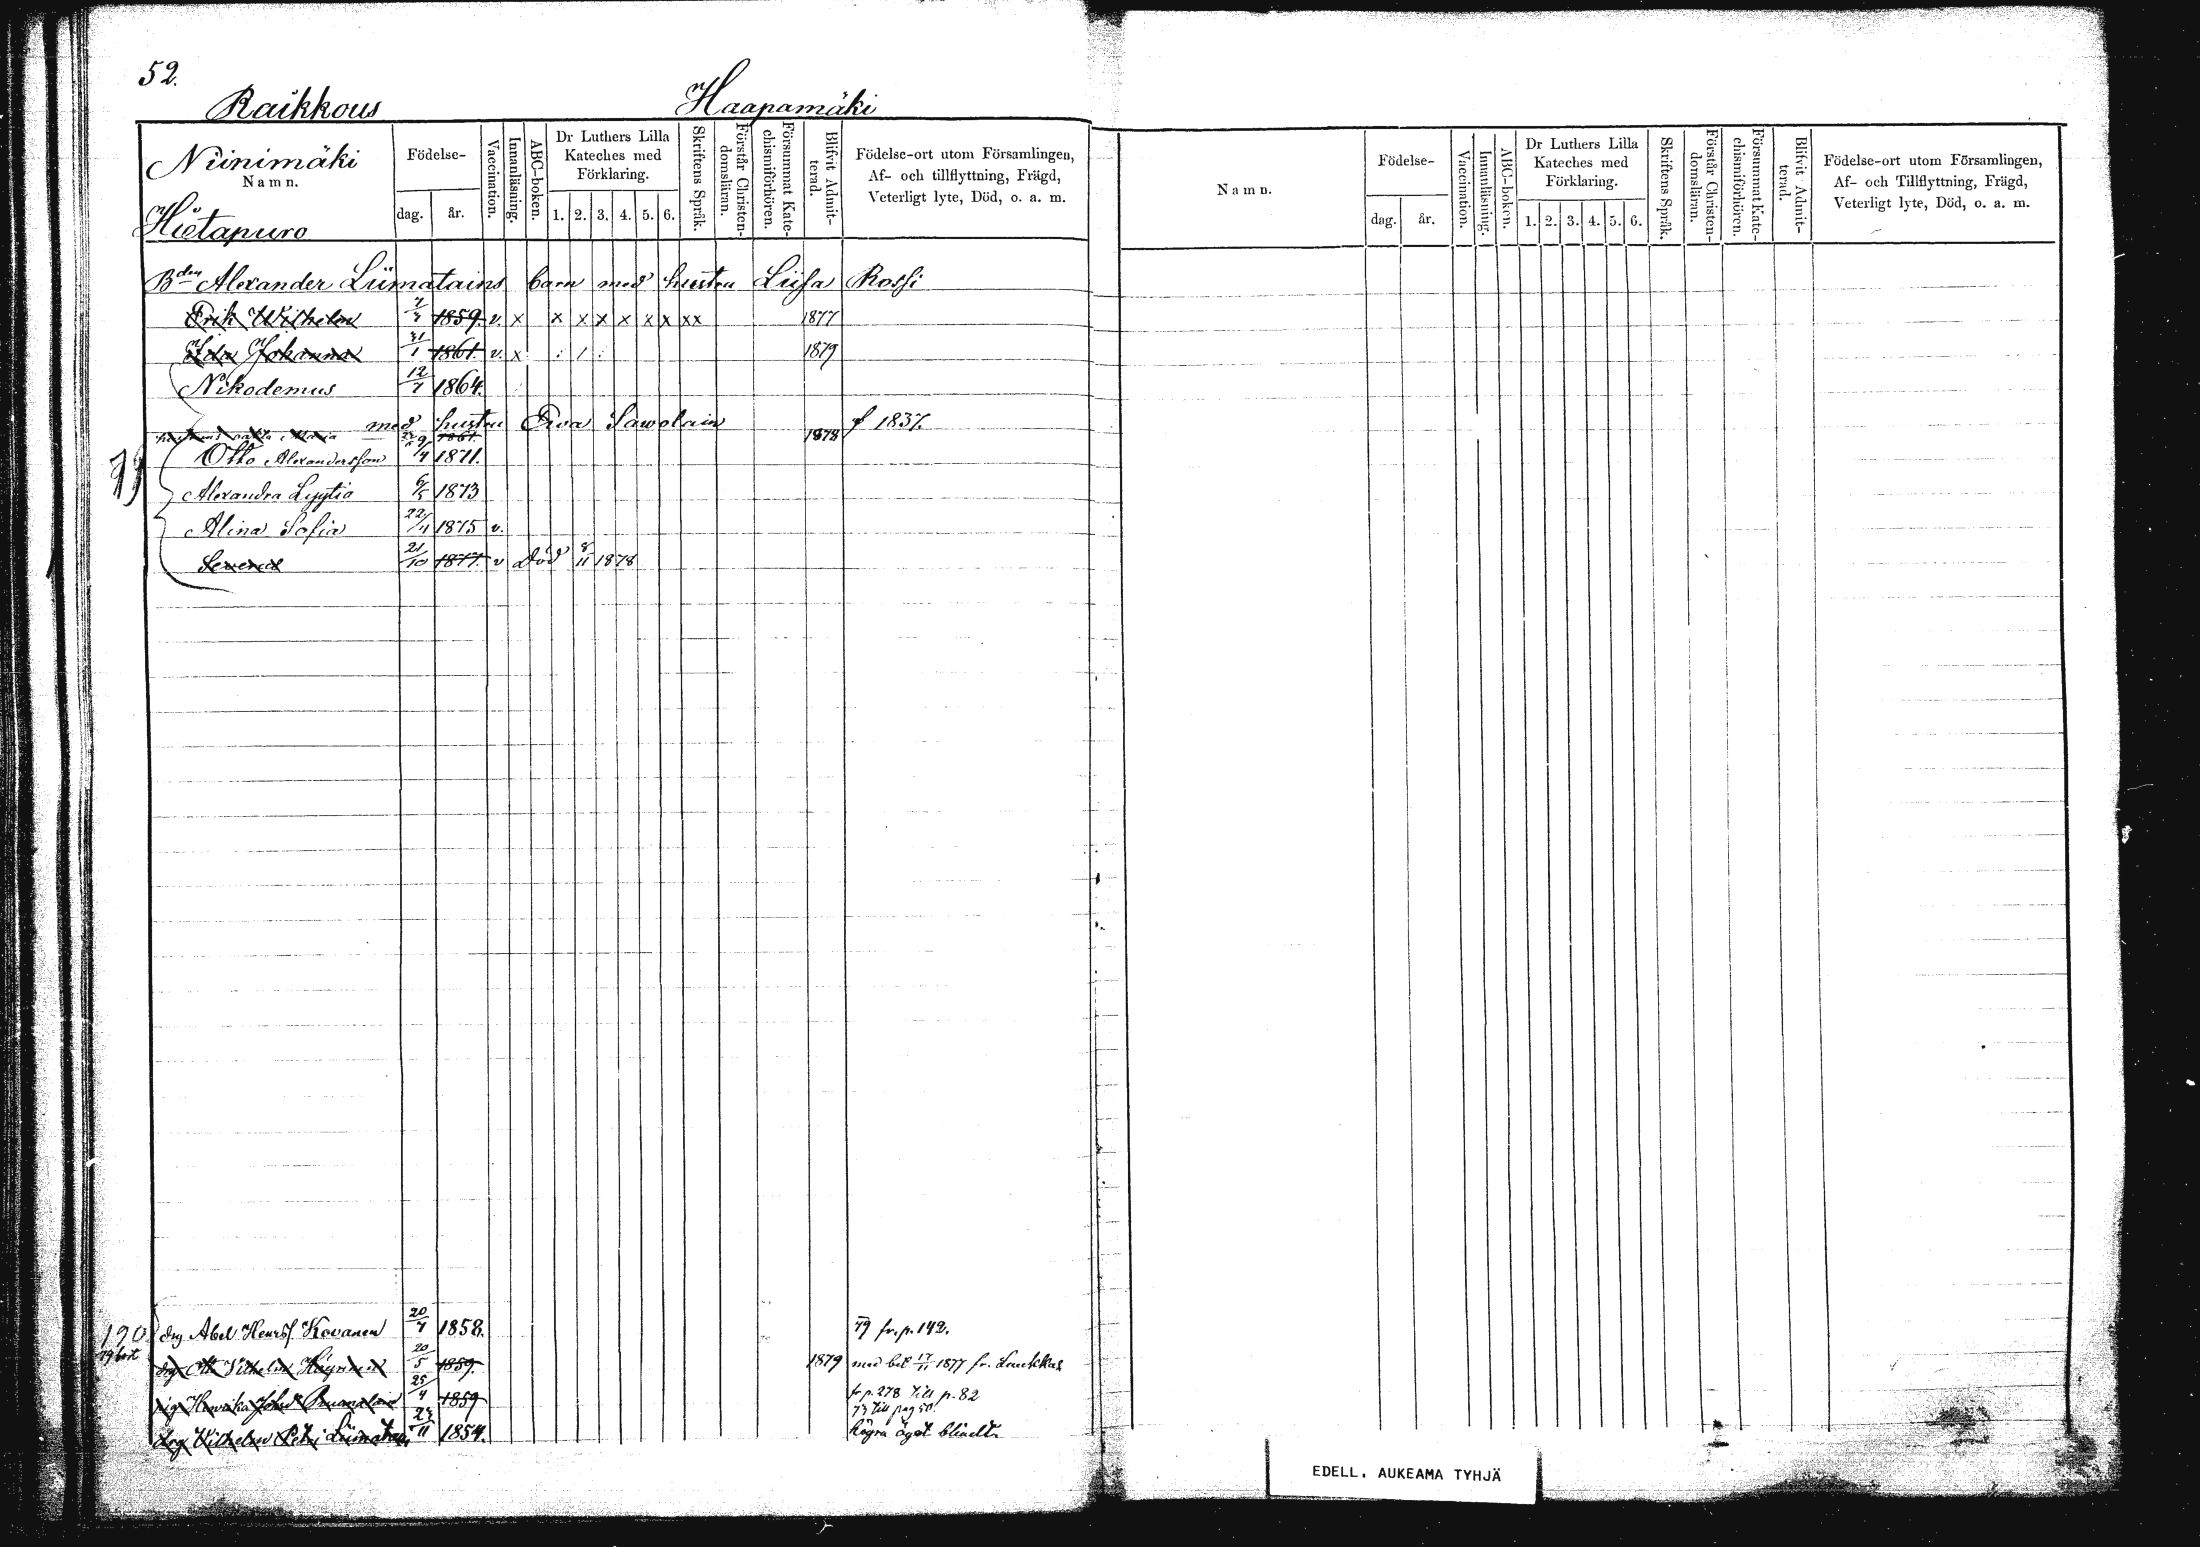 52.
Raikkous Haapamäki
Niinimäki
Namn.
Hietapuro
Födelse-
dag. år.
Vaccination.
Innanläsning.
ABC-boken.
Dr Luthers Lilla
Kateches med
Förklaring.
1. 2. 3. 4. 5. 6.
Skriftens Språk.
Förstår Christen-
domsläran.
Försummat Kate-
chismiförhören.
Blifvit Admit-
terad.
Födelse-ort utom Församlingen,
Af- och tillflyttning, Frägd,
Veterligt lyte, Död, o. a. m.
Bden Alexander Liimatains barn med hustru Liisa Rossi
Erik Wilhelm 1859. v. x x x x x x x xx 1877
Ida Johanna 31/1 1861. v. x 1879
Nikodemus 12/7 1864.
med hustru Eva Sawolain f 1837.
Maria 1861. 1878
79
Otto Alexandersson 9/4 1871.
Alexandra Lyytia 6/5 1873
Alina Sofia 22/11 1875 v.
Severus 21/10 1877. v Död 8/11 1878
190.
79 bort
drg Abel Henrss. Kovanen 20/7 1858. 79 fr. p. 142.
drg Otto Vilhelm Höyninen 20/5 1859. 1879 med bet 17/11 1877 fr. Laukkas
pig Henrika Johsdr 25/4 1859 fr p. 278 till p. 82
79 till pag 50.
drg Vilhelm Petri Liimatain 23/11 1854. högra ögat blindt.
Namn.
Födelse-
dag. år.
Vaccination.
Innanläsning.
ABC-boken.
Dr Luthers Lilla
Kateches med
Förklaring.
1. 2. 3. 4. 5. 6.
Skriftens Språk.
Förstår Christen-
domsläran.
Försummat Kate-
chismiförhören.
Blifvit Admit-
terad.
Födelse-ort utom Församlingen,
Af- och Tillflyttning, Frägd,
Veterligt lyte, Död, o. a. m.
EDELL. AUKEAMA TYHJÄ